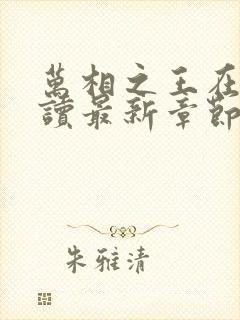 萬相之王在
讀最新章節
朱雅清